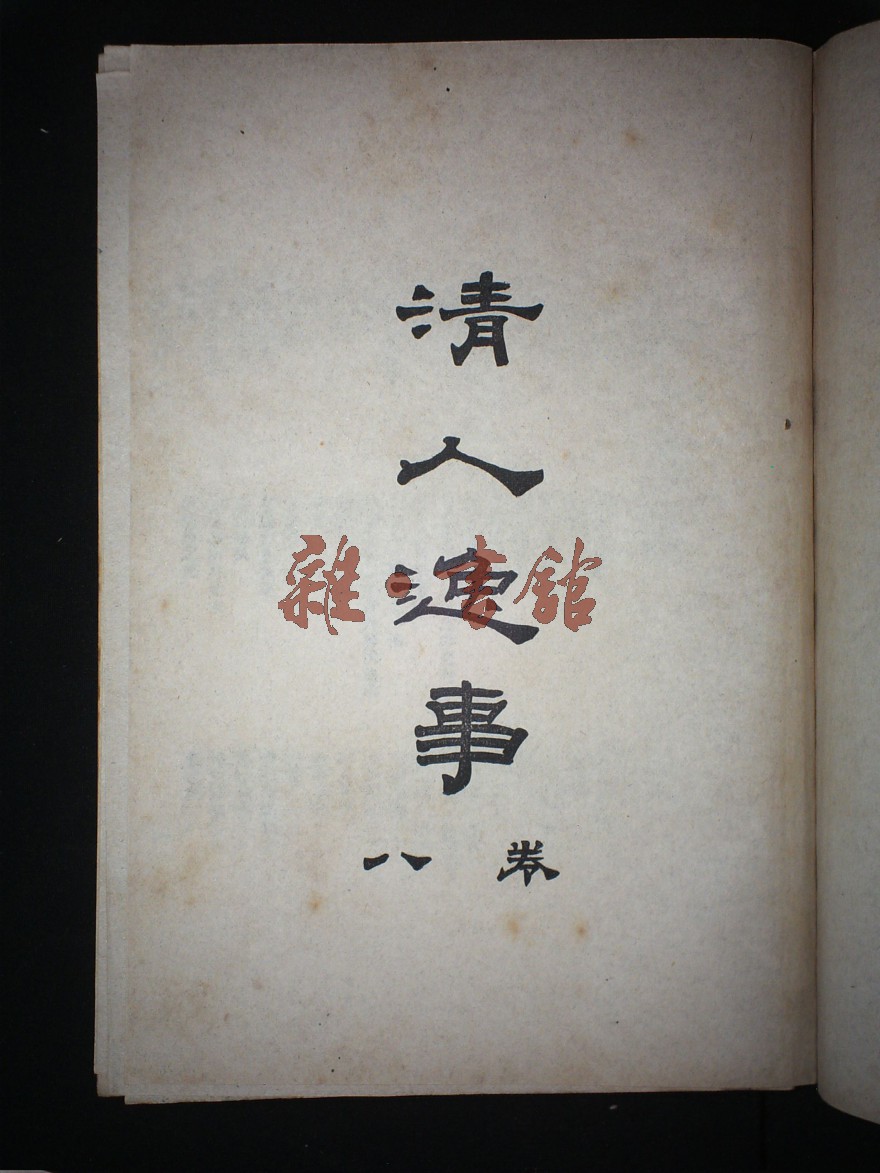 清人逸事
卷八
雜·書館